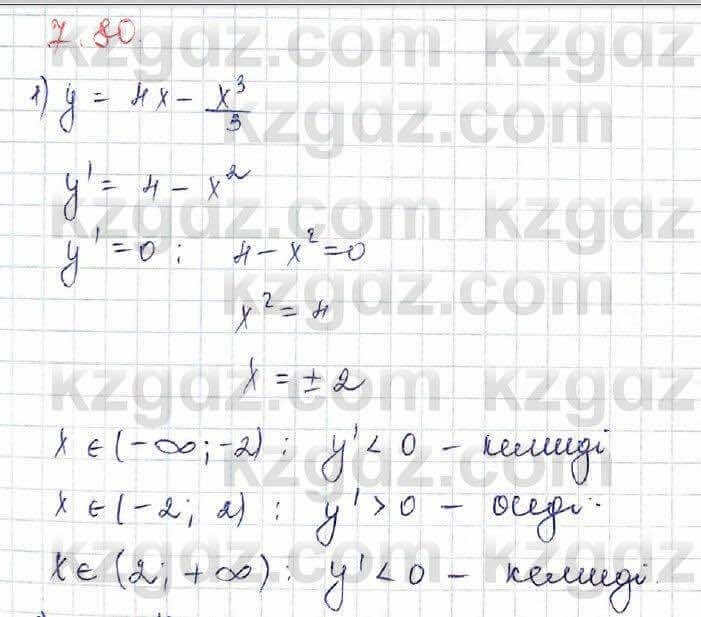 7.80.
1) y = 4x - x³/3
y' = 4 - x²
y' = 0 : 4 - x² = 0
x² = 4
x = ± 2
x ∈ (-∞; -2) : y' < 0 - кемиді
x ∈ (-2; 2) : y' > 0 - өседі.
x ∈ (2; +∞) : y' < 0 - кемиді.
kzgdz.com kzgdz.com
kzgdz.com
kzgdz.com kzgdz.com
kzgdz.com
kzgdz.com kzgdz.com
kzgdz.com
kzgdz.com kzgdz.com